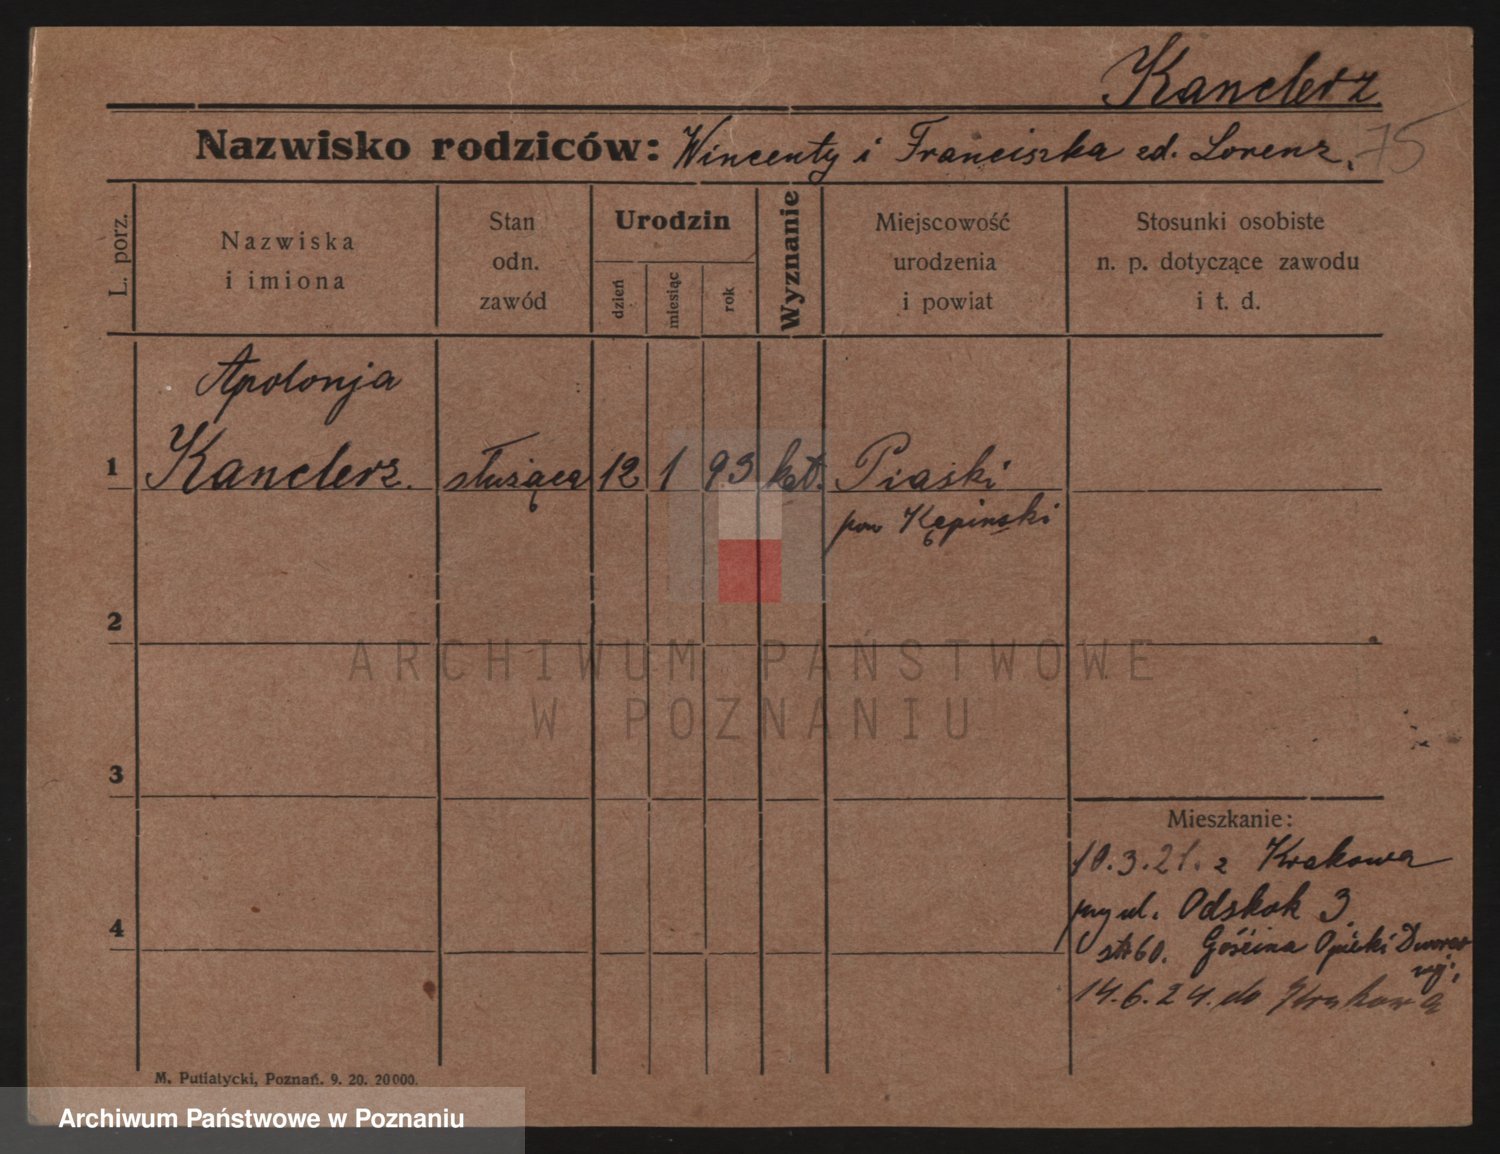 Kanclerz
Nazwisko rodziców: Wincenty i Franciszka zd. Lorenz. 75
L. porz.
Nazwiska
i imiona
Stan
odn.
zawód
Urodzin
dzień
miesiąc
rok
Wyznanie
Miejscowość
urodzenia
i powiat
Stosunki osobiste
n. p. dotyczące zawodu
i t. d.
Apolonja
1 Kanclerz. służąca 12 1 93 kat. Piaski
pow Kępiński
2
ARCHIWUM PAŃSTWOWE
W POZNANIU
3
Mieszkanie:
10.3.21. z Krakowa
przy ul. Odskok 3
4
str 60. Gościna Opieki Dworco
wej.
14.6.24. do Krakowa
M. Putiatycki, Poznań. 9. 20. 20000.
Archiwum Państwowe w Poznaniu